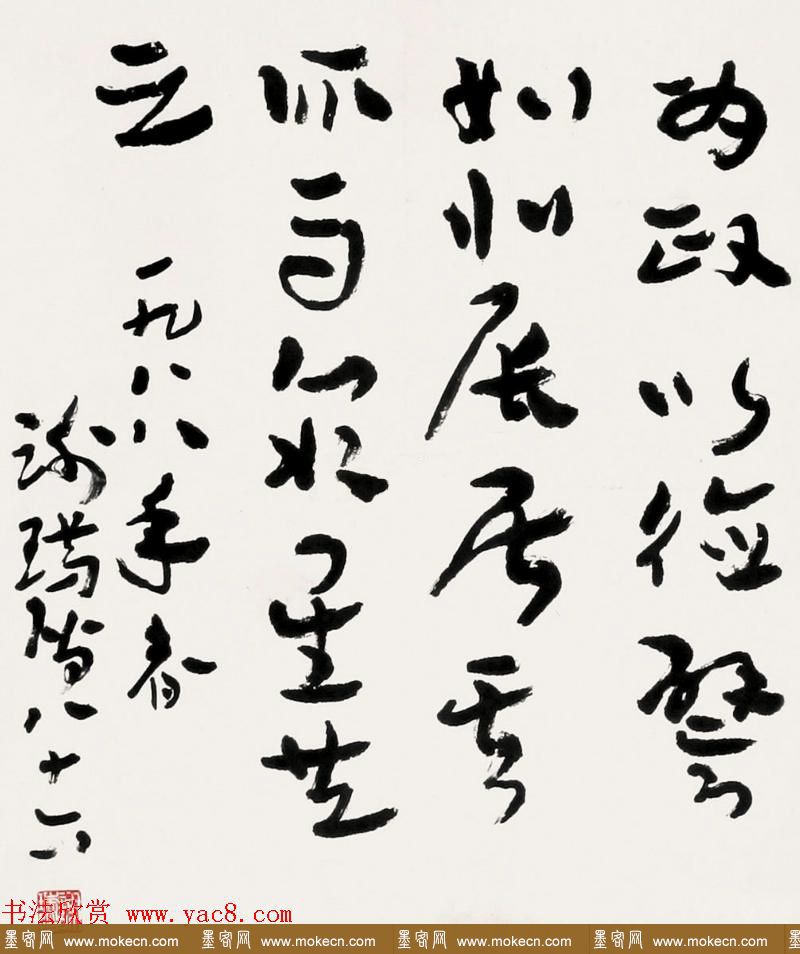 为政以德譬
如北辰居其
所而众星共
之 一九八八年春
谢瑞阶八十六
书法欣赏 www.yac8.com
墨客网 www.mokecn.com 墨客网 www.mokecn.com 墨客网 www.mokecn.com 墨客网 www.mokecn.com